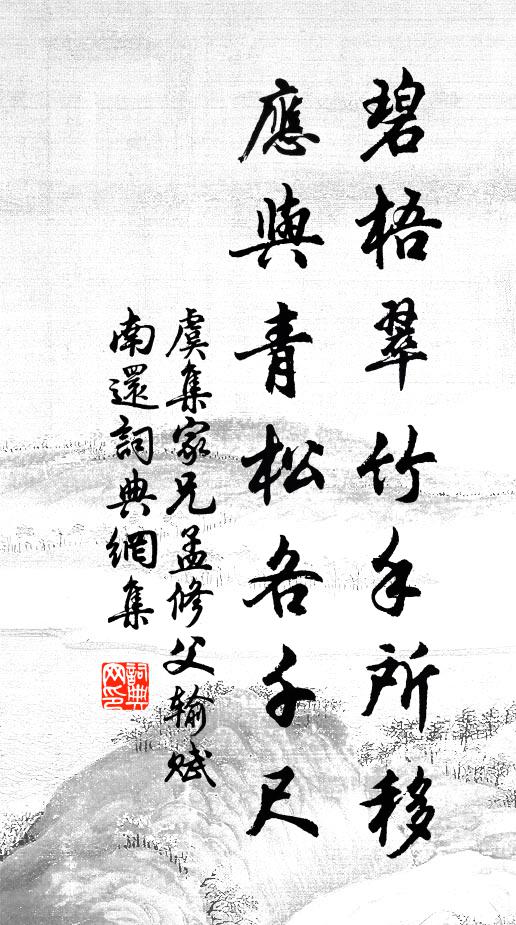 碧梧翠竹手所移
應與青松各千尺
虞集家兄孟修父输賦
南還詞典網集
詞典网印